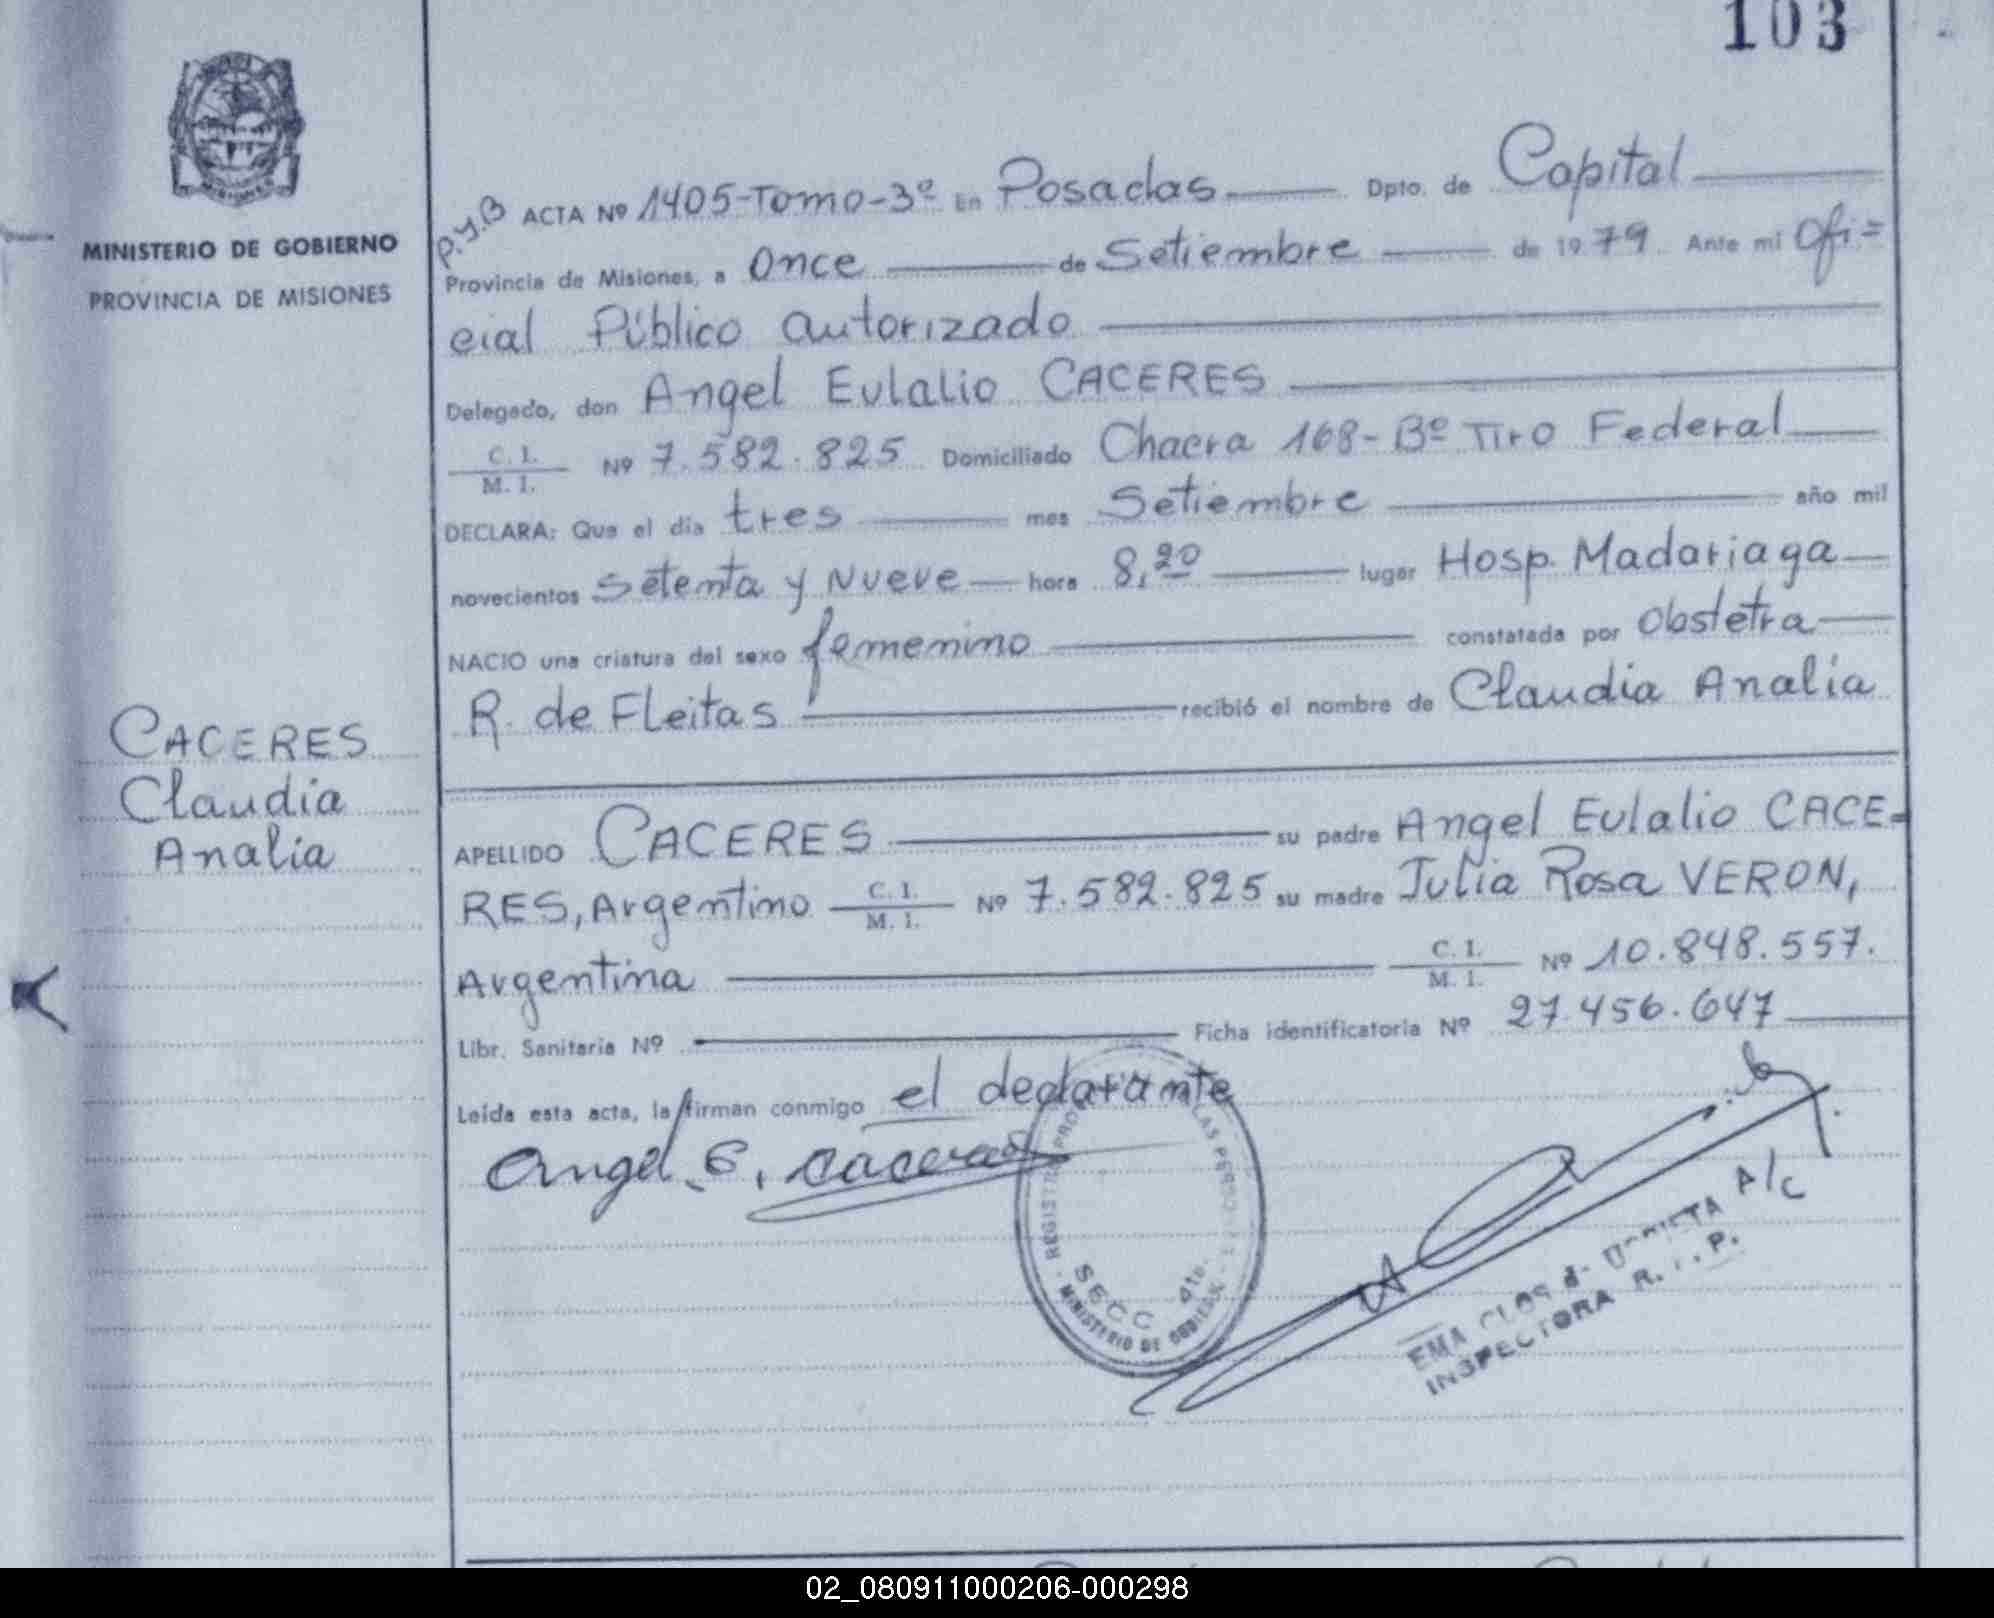 103
MINISTERIO DE GOBIERNO
PROVINCIA DE MISIONES
P.y.B ACTA Nº 1405-Tomo-3º En Posadas Dpto. de Capital
Provincia de Misiones, a Once de Setiembre de 1979 Ante mi Ofi=
cial Público autorizado
Delegado, don Angel Eulalio CACERES
C. I.
M. I. Nº 7.582.825 Domiciliado Chacra 168-Bº Tiro Federal
DECLARA: Que el día tres mes Setiembre año mil
novecientos Setenta y Nueve hora 8,20 lugar Hosp. Madariaga
NACIO una criatura del sexo femenino constatada por Obstetra
R. de Fleitas recibió el nombre de Claudia Analía
CACERES
Claudia
Analía
APELLIDO CACERES su padre Angel Eulalio CACE=
RES, Argentino C. I.
M. I. Nº 7.582.825 su madre Julia Rosa VERON,
Argentina C. I.
M. I. Nº 10.848.557.
Libr. Sanitaria Nº Ficha identificatoria Nº 27.456.647
Leída esta acta, la firman conmigo el declarante
Angel. E. Caceres
SECC 4ta.
MINISTERIO DE GOBIERNO
A/C
EMA
INSPECTORA
02_080911000206-000298